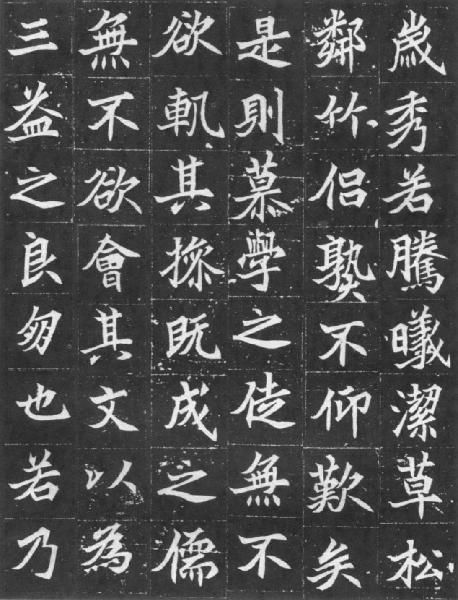 嵗秀若騰曦潔草松
鄰竹侶孰不仰歎矣
是則慕學之徒無不
欲軌其操既成之儒
無不欲會其文以為
三益之良朋也若乃